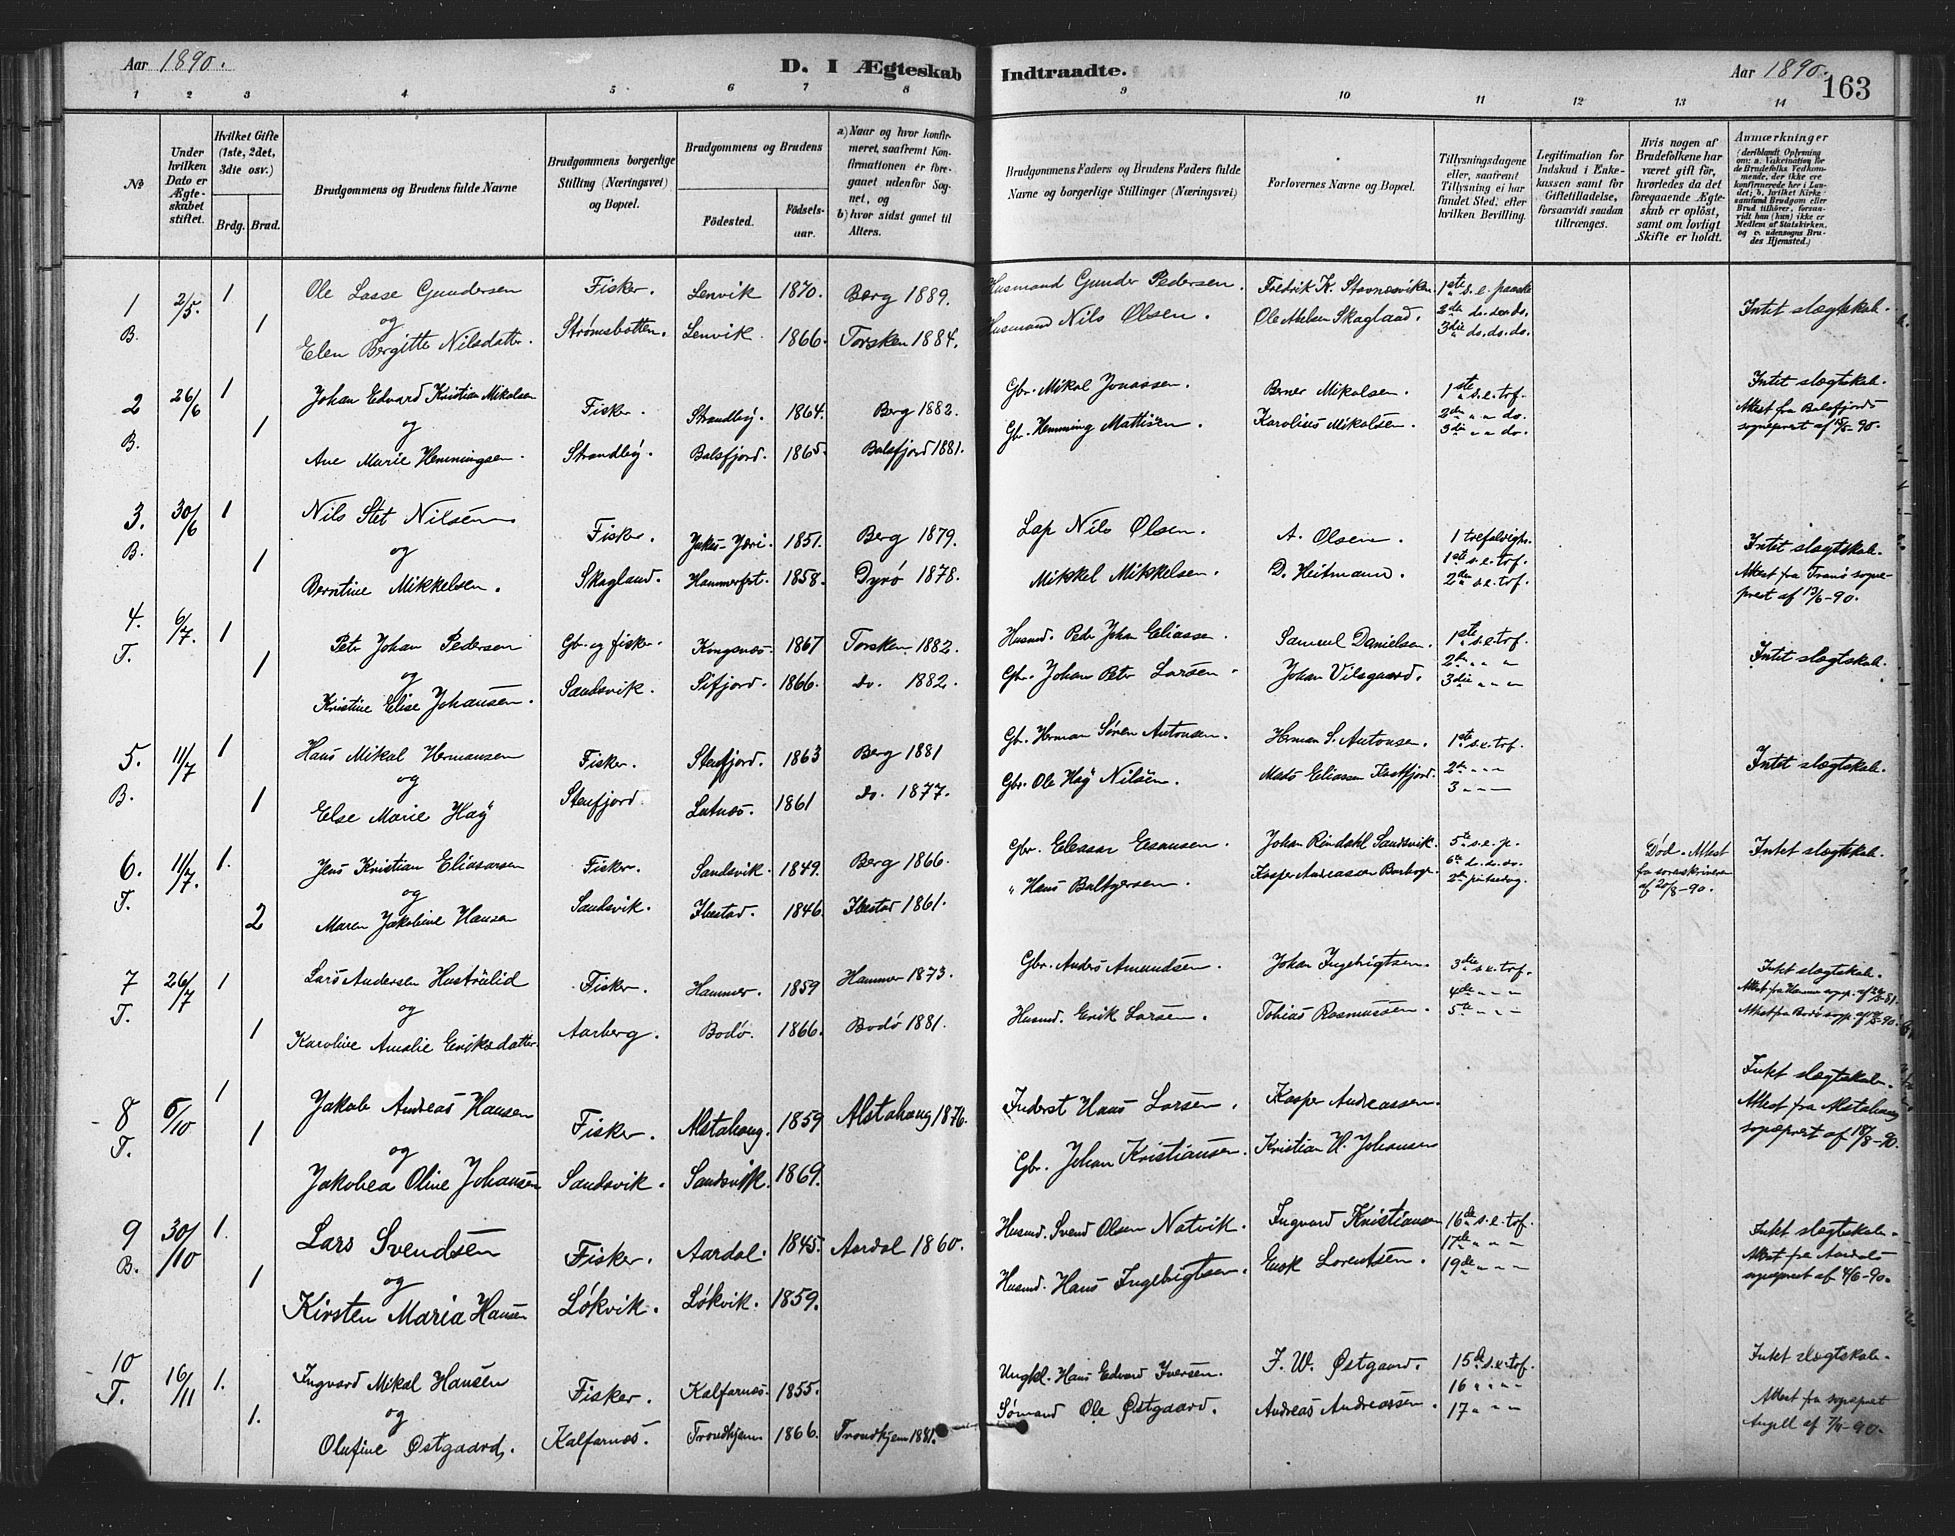 Aar 1890.
D. I Ægteskab Indtraadte.
Aar 1890.
163
1 2 3 4 5 6 7 8 9 10 11 12 13 14
No
Under hvilken Dato er Ægteskabet stiftet.
Hvilket Gifte (1ste, 2det, 3die osv.)
Brdg. Brud.
Brudgommens og Brudens fulde Navne
Brudgommens borgerlige Stilling (Næringsvei) og Bopæl.
Brudgommens og Brudens
Fødested.
Fødselsaar.
a) Naar og hvor konfirmeret, saafremt Konfirmationen er foregaaet udenfor Sognet, og
b) hvor sidst gaaet til Alters.
Brudgommens Faders og Brudens Faders fulde Navne og borgerlige Stillinger (Næringsvei)
Forlovernes Navne og Bopæl.
Tillysningsdagene eller, saafremt Tillysning ei har fundet Sted, efter hvilken Bevilling.
Legitimation for Indskud i Enkekassen samt for Giftetilladelse, forsaavidt saadan tiltrænges.
Hvis nogen af Brudefolkene har været gift før, hvorledes da det foregaaende Ægteskab er opløst, samt om lovligt Skifte er holdt.
Anmærkninger
1 2/5. 1 Ole Lasse Gundersen Fisker. Lenvik 1870. Berg 1889. Husmand Gunder Pedersen. Fredrik K. Stavnesviken 1ste s.e. paaske
B. og
1 Elen Bergitte Nilsdatter. Strømsbotten. Lenvik. 1866. Torsken 1884. Husmand Nils Olsen. Ole Skagland. 2den do. do. 3die do. do. do. Intet slægtskab.
2 26/6 1 Johan Edvard Kristian Mikalsen Fisker. Strandby. 1864. Berg 1882. Gbr. Mikal Jonassen. Berner Mikalsen. 1ste s.e. tref. Intet slægtskab.
B. og
1 Ane Marie Hemmingsen. Strandby. Balsfjord. 1865. Balsfjord 1881. Gbr. Hemming Mattisen. Karolius Mikalsen. 2den " " do. 3die " " do. Attest fra Balsfjords sogneprest af
3. 30/6 1 Nils Stet Nilsen Fisker. 1851. Berg 1879. Lap Nils Olsen. A. Olsen. 1 trefoldigh.
B. og
1 Berntine Mikkelsen. Skagland. Hammerfest. 1858. Dyrø 1878. Mikkel Mikkelsen. D. Heitmann. 1ste 2den s.e. tref. Intet slægtskab. Attest fra Tranø sogneprest af 13/6-90.
4. 6/7. 1 Petr Johan Pedersen Gbr. og fisker. Kongsnæs. 1867 Torsken. 1882. Husmd. Pedr Johan Eliassen. Samuel Danielsen. 1ste s.e. tref.
T. og
1 Kristine Elise Johansen. Sandsvik. Sifjord. 1866. do. 1882. Gbr. Johan Petr Larsen. Johan Vilsgaard. 2den " " 3die " " Intet slægtskab.
5. 11/7 1 Hans Mikal Hermansen Fisker. Stenfjord. 1863 Berg 1881 Gbr. Herman Søren Antonsen. Herman S. Antonsen. 1ste s.e. tref.
B. og
1 Else Marie Høy Stenfjord. 1861 do. 1877. Gbr. Ole Høy Nilsen. Mads Eliassen 2den " " 3 " " Intet slægtskab.
6. 11/7. 1. Jens Kristian Eliasarsen Fisker. Sandsvik. 1849. Berg 1866. Gbr. Eleasar Esausen. Johan Rendahl Sandsvik. 5te s.e. p. Død. Attest fra sorenskriveren af 20/8-90. Intet slægtskab.
T. og
2 Maren Jakobine Hansen Sandsvik. Ibestad. 1846. Ibestad 1861. " Hans Baltzersen. Kasper Andreassen 6te do. do. 2den pintsedag
7 26/7 1 Lars Andersen Hustrulid Fisker. Hammer. 1859 Hammer 1873. Gbr. Anders Amundsen. Johan Ingebrigtsen. 3die s.e. tref. Intet slægtskab.
T. og
1 Karoline Amalie Eriksdatter. Aarberg. Bodø. 1866. Bodø 1881. Husmd. Erik Larsen. Tobias Rasmussen. 4de " " 5te " "
8 5/10 1 Jakob Andreas Hansen Fisker. Alstahaug. 1859 Alstahaug 1876. Inderst Hans Larsen. Kasper Andreassen. Intet slægtskab.
T. og
1 Jakobea Oline Johansen Sandsvik. Sandsvik. 1869. Gbr. Johan Kristiansen. Kristian H. Johansen Attest fra Alstahaug sogneprest af 18/8-90.
9 30/10 1. Lars Svendsen Fisker. Aardal. 1845. Aardal 1860. Husmd. Svend Olsen Natvik. Ingvard Kristiansen 16de s.e. tref. Intet slægtskab.
B. og
1 Kirsten Maria Hansen Løkvik. Løkvik. 1859. Husmd. Hans Ingebrigtsen. Enok Lorentsen. 17de " " 19de " " Attest fra Aardals sogneprest af 4/6-90.
10 16/11 1. Ingvard Mikal Hansen Fisker. Kalfarnes. 1855. Ungkl. Hans Edvard Iversen. J. W. Østgaard. 15de s.e. tref. Intet slægtskab.
T. og
1. Olufine Østgaard. Kalfarnes. Trondhjem 1866. Trondhjem 1881. Sømand Ole Østgaard. Andreas Andreassen. 16 " " 17 " " Attest fra sogneprest Angell af